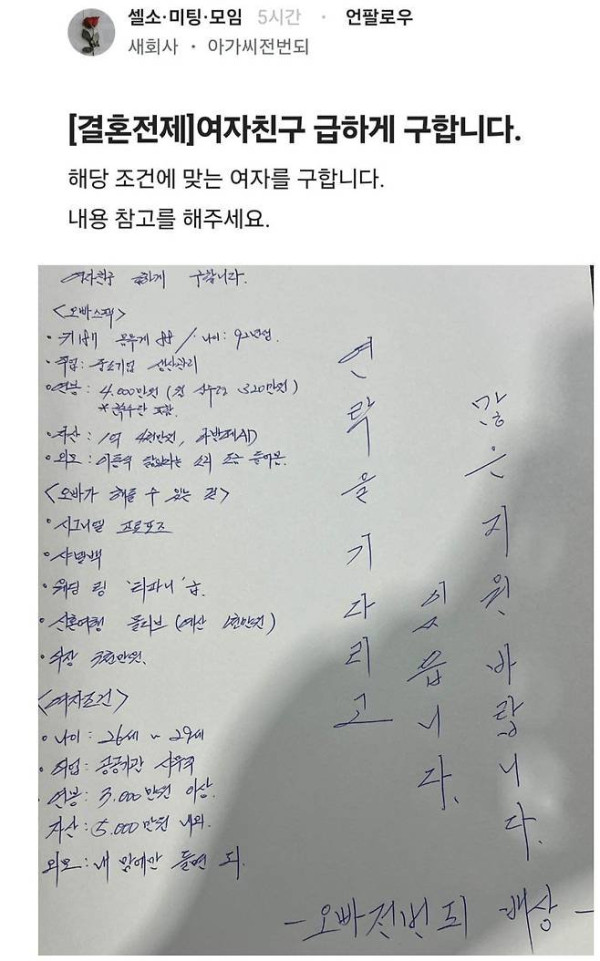 셀소·미팅·모임 5시간 · 언팔로우
새회사 · 아가씨전번되
[결혼전제]여자친구 급하게 구합니다.
해당 조건에 맞는 여자를 구합니다.
내용 참고를 해주세요.
여자친구 급하게 구합니다.
<오빠스펙>
• 키 몸무게 / 나이: 92년생.
• 직업: 중소기업 생산관리
• 연봉: 4,000만원 (월 실수령 320만원)
포함.
• 자산: 1억 4천만원,
• 외모: 이동욱 닮았다는 소리 조금 들어봄.
<오빠가 해줄 수 있는 것>
• 시그니엘 프로포즈
• 샤넬백
• 웨딩 링 '티파니' 급.
• 신혼여행 몰디브 (예산 1천만원)
천만원.
<여자조건>
• 나이: 26세 ~ 29세
• 직업: 공공기관 사무직
• 연봉: 3,000만원 이상.
자산: 5,000만원 내외.
외모: 내 맘에만 들면 돼.
연락을 기다리고
있읍니다.
많은 지원 바랍니다.
- 오빠전번되 배상 -